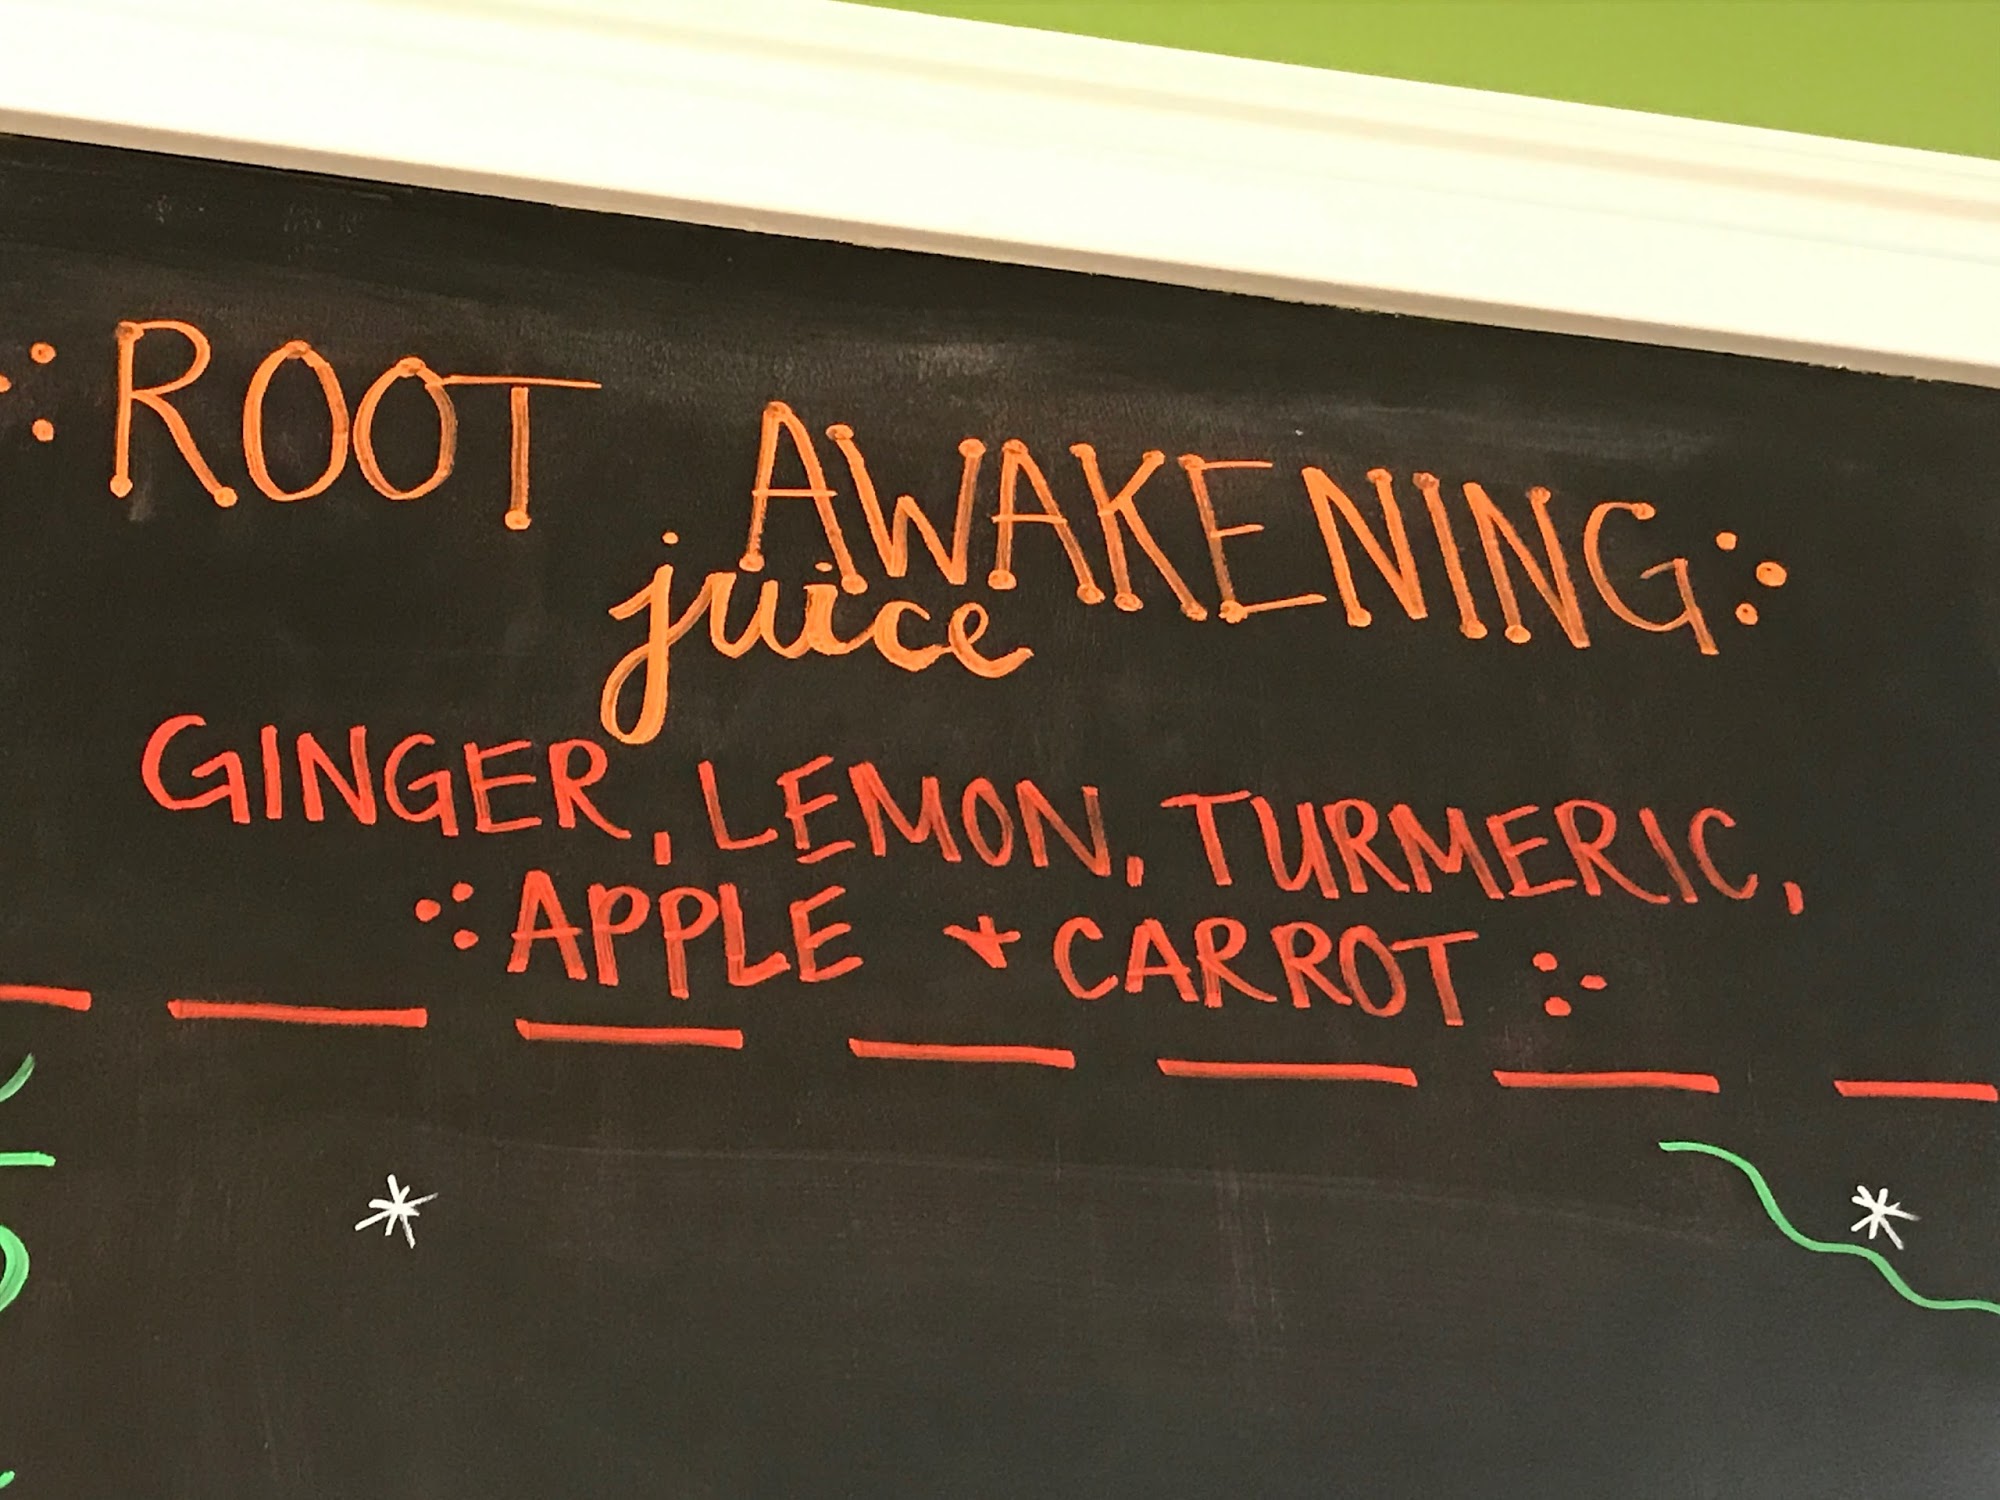 ROOT AWAKENING
juice
GINGER, LEMON, TURMERIC,
APPLE + CARROT